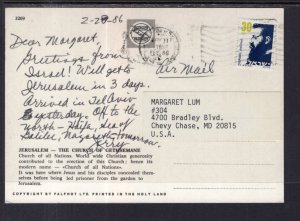 3269
2-20-86
Dear Margaret,
Greetings from
Israel! Will get to
Jerusalem in 3 days.
Arrived in Tel Aviv
yesterday. Off to the
North - Haifa, Sea of
Galilee, Nazareth tomorrow.
Jerry
Air Mail
30
MARGARET LUM
#304
4700 Bradley Blvd.
Chevy Chase, MD 20815
U.S.A.
JERUSALEM — THE CHURCH OF GETHSEMANE
Church of all Nations. World wide Christian generosity
contributed to the erection of this Church: hence its
modern name — «Church of all Nations».
It was here where Jesus and his disciples concealed them-
selves before being led prisoner from the garden to
Jerusalem.
COPYRIGHT BY PALPHOT LTD. PRINTED IN THE HOLY LAND